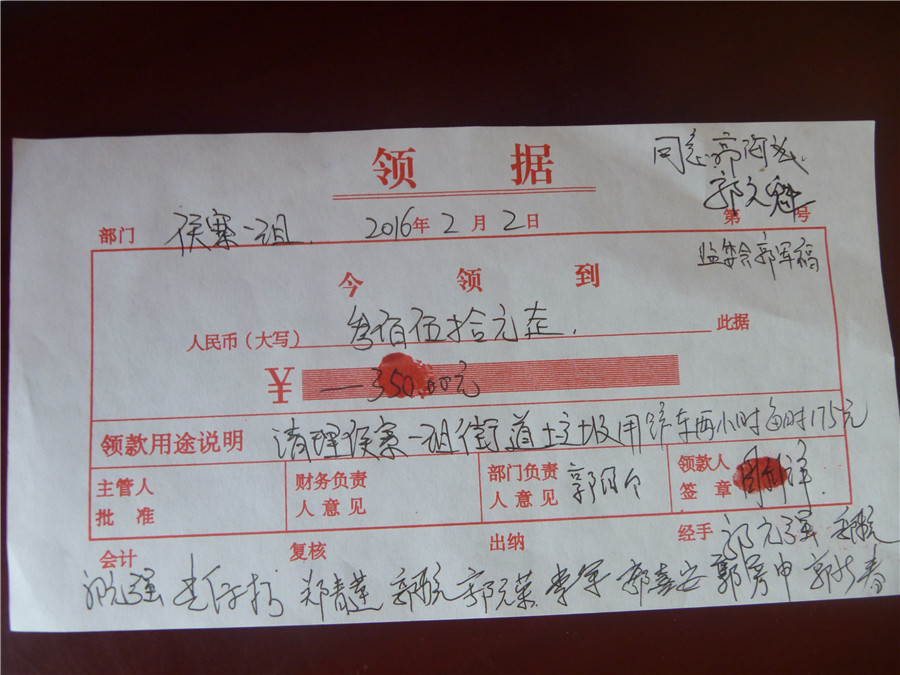 领 据
同意 郭海
郭文魁
部门 侯寨一组 2016年 2 月 2 日 第 号
监委会郭军福
今 领 到
人民币（大写） 叁佰伍拾元正 此据
¥ 350.00元
领款用途说明 清理侯寨一组街道垃圾用铲车两小时每时175元
主管人批 准 财务负责人意见 部门负责人意见 领款人签 章
会计 复核 出纳 经手 郭元强
郭元强 郑青莲 郭元荣 李军 郭喜安 郭勇申 郭春